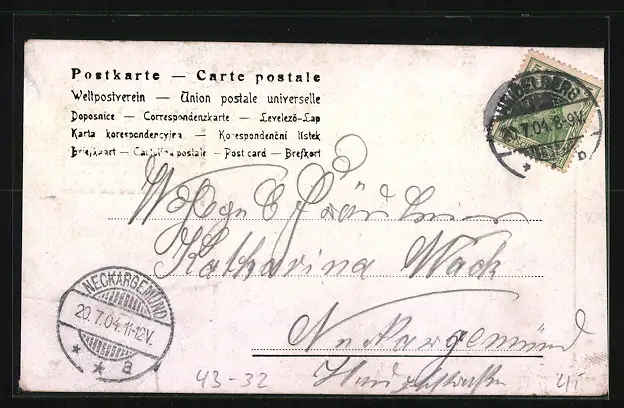 Postkarte — Carte postale
Weltpostverein — Union postale universelle
Doposnice — Correspondenzkarte — Levelező-Lap
Karta korespondencyjna — Korespondenční lístek
Briefkaart — Cartolina postale — Post card — Brefkort
HEIDELBERG
20.7.04. 8-9V.
Fräulein
Katharina Wack
Neckargemünd
NECKARGEMÜND
20.7.04.11-12V.
* * a
43-32